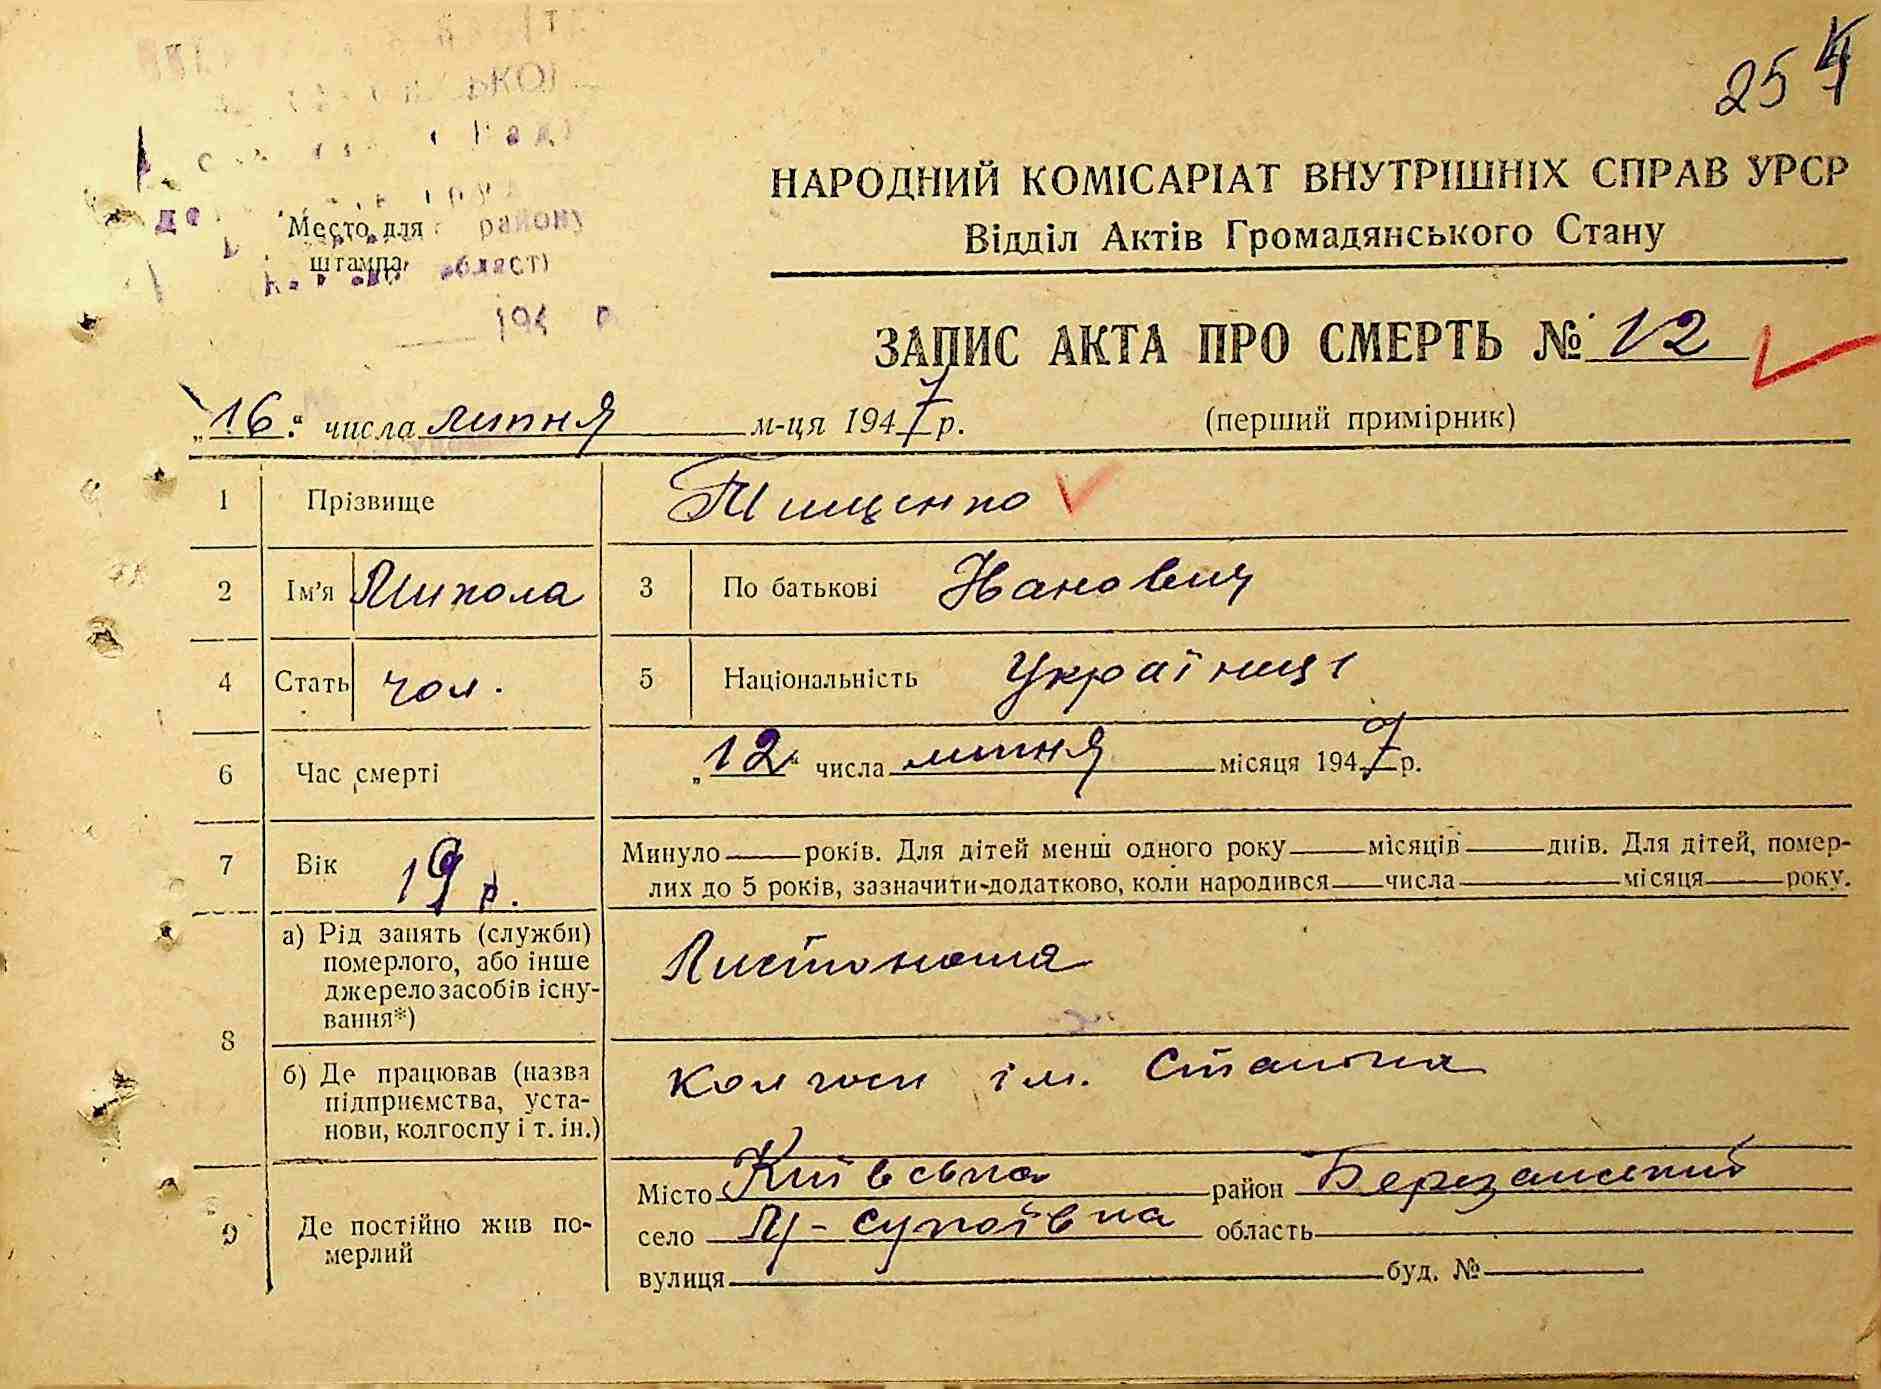 254
НАРОДНИЙ КОМІСАРІАТ ВНУТРІШНІХ СПРАВ УРСР
Відділ Актів Громадянського Стану
Место для району
штампа області
194 р.
ЗАПИС АКТА ПРО СМЕРТЬ № 12
„16“ числа липня м-ця 1947 р. (перший примірник)
1 Прізвище Тищенко
2 Ім'я Микола 3 По батькові Иванович
4 Стать чол. 5 Національність Українці
6 Час смерті „12“ числа липня місяця 1947 р.
7 Вік 19 р. Минуло ___ років. Для дітей менш одного року ___ місяців ___ днів. Для дітей, помер-
лих до 5 років, зазначити додатково, коли народився ___ числа ___ місяця ___ року.
8 а) Рід занять (служби)
померлого, або інше
джерело засобів існу-
вання*)
Листоноша
б) Де працював (назва
підприємства, уста-
нови, колгоспу і т. ін.)
колгосп ім. Сталіна
9 Де постійно жив по-
мерлий
Місто Київська район Березанський
село -Супоївка область
вулиця буд. №